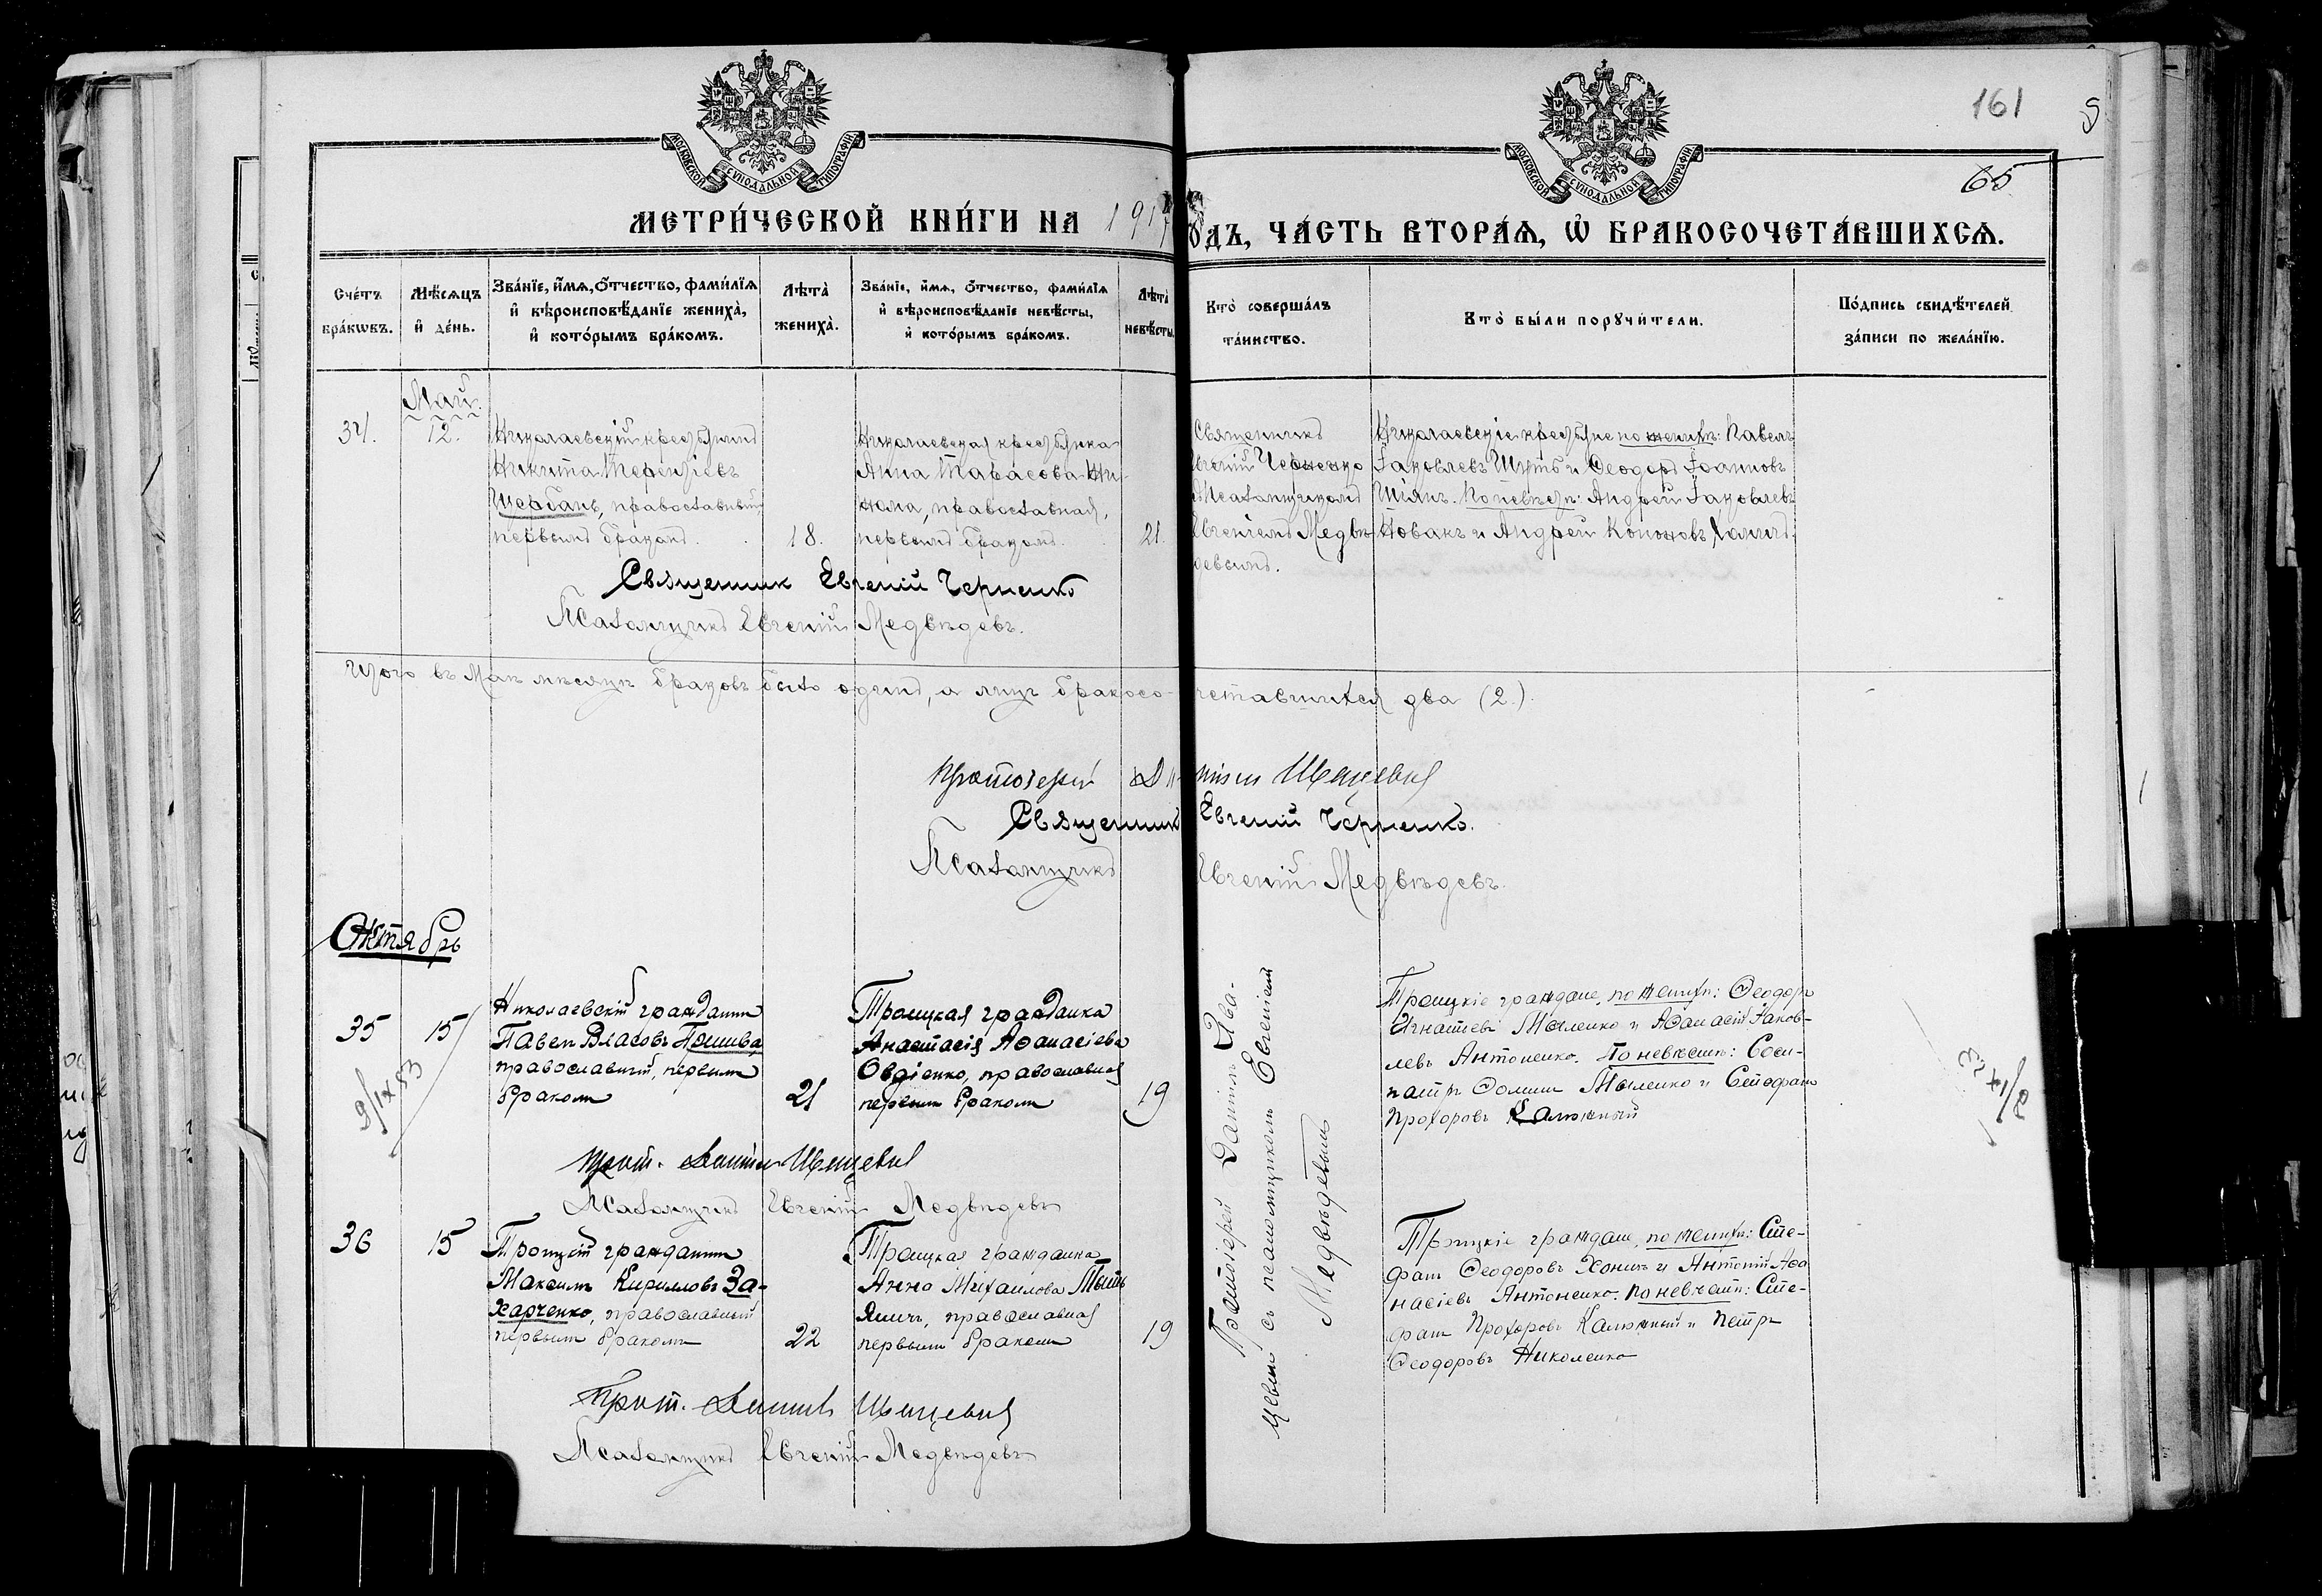 161
65
МОСКОВСКОЙ СѴНОДАЛЬНОЙ ТИПОГРАФІИ
МОСКОВСКОЙ СѴНОДАЛЬНОЙ ТИПОГРАФІИ
МЕТРИ́ЧЕСКОЙ КНИ́ГИ НА 1917
ДЪ, ЧА́СТЬ ВТОРА́Ѧ, Ѡ БРАКОСОЧЕТА́ВШИХСѦ.
Сче́тъ
бра́кѡвъ.
Мѣ́сяцъ
и де́нь.
Зва́нїе, и́мѧ, ѻ́тчество, фами́лїѧ
и вѣроисповѣ́данїе жениха̀,
и кото́рымъ бра́комъ.
Лѣта̀
жениха̀.
Зва́нїе, и́мѧ, ѻ́тчество, фами́лїѧ
и вѣроисповѣ́данїе невѣ́сты,
и кото́рымъ бра́комъ.
Лѣта̀
невѣ́сты
Кто̀ соверша́лъ
та́инство.
Кто̀ бы́ли порꙋчи́тели.
По́дпись свидѣ́телей
за́писи по жела́нїю.
Май.
34. 12.
Николаевскій крестьянинъ
Никита Терентіевъ
Щербань, православный,
первымъ бракомъ. 18.
Николаевская крестьянка
Анна Тарасова
православная,
первымъ бракомъ. 21.
Священникъ
Евгеній Черненко
Псаломщикомъ
Евгеніемъ Медвѣ-
девымъ.
Николаевскіе крестьяне по женихѣ: Павелъ
Іаковлевъ Шутъ и Ѳеодоръ Іоанновъ
По невѣстѣ: Андрей Іаковлевъ
Новакъ и Андрей Кононовъ
Священник Евгеній Черненко
Псаломщикъ Евгеній Медвѣдевъ.
Итого въ Маѣ мѣсяцѣ браковъ было одинъ, а лицъ бракосо-
четавшихся два (2).
Протоіерей Даніилъ
Священникъ Евгеній Черненко.
Псаломщикъ Евгеній Медвѣдевъ.
Октябрь
35 15
Николаевскій гражданинъ
Павелъ Власовъ
православный, первымъ
бракомъ 21
Троицкая гражданка
Анастасія Аѳанасіева
Овдіенко, православная
первымъ бракомъ 19
Протоіерей Даніилъ Ива-
цевич съ псаломщикомъ Евгеніемъ
Медвѣдевымъ
Троицкіе граждане, по женихѣ: Ѳеодоръ
Игнатіевъ и Аѳанасій Іаков-
левъ Антоненко. По невѣстѣ: Соси-
патръ Ѳоминъ и Стефанъ
Прохоровъ Калюжный
Прот. Даніилъ
Псаломщикъ Евгеній Медвѣдевъ
36 15
Троицкій гражданинъ
Максимъ Кирилловъ За-
харченко, православный
первымъ бракомъ 22
Троицкая гражданка
Анна Михаилова
православная
первымъ бракомъ 19
Троицкіе граждане, по женихѣ: Сте-
фанъ Ѳеодоровъ и Антоній Аѳа
насіевъ Антоненко. По невѣстѣ: Сте-
фанъ Прохоровъ Калюжный и Петръ
Ѳеодоровъ Николенко
Прот. Даніилъ
Псаломщикъ Евгеній Медвѣдевъ